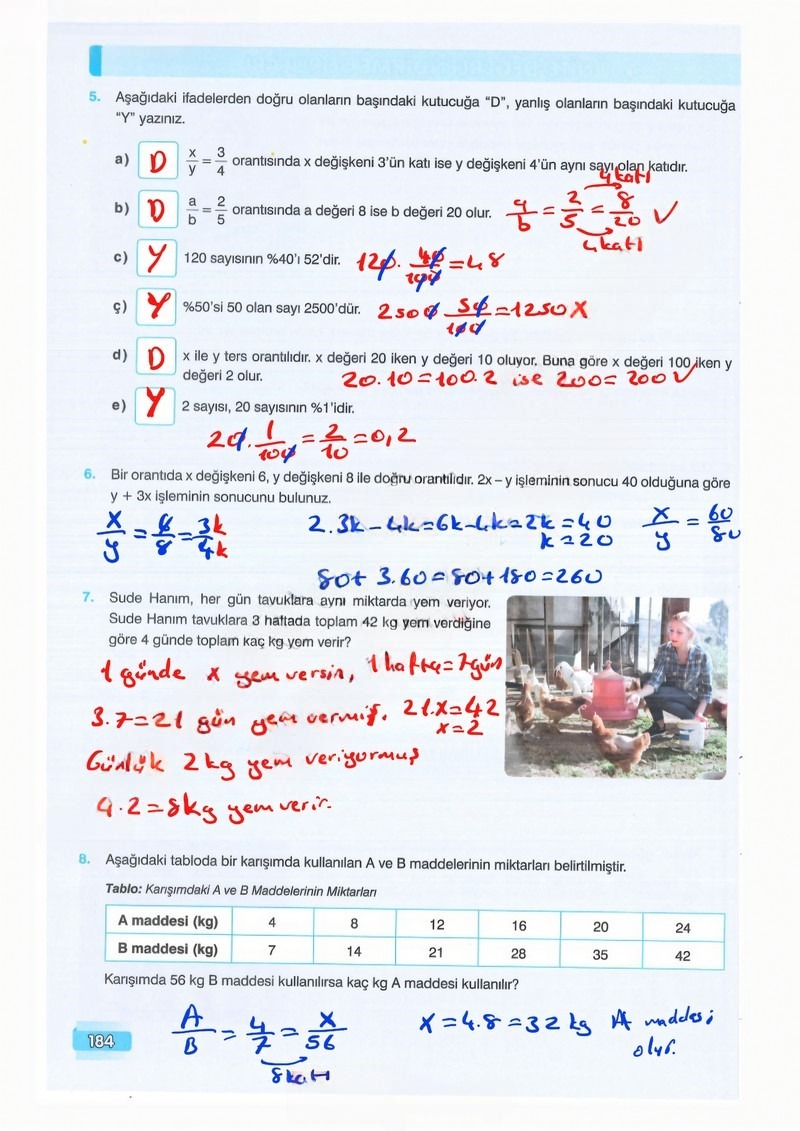 5. Aşağıdaki ifadelerden doğru olanların başındaki kutucuğa “D”, yanlış olanların başındaki kutucuğa
“Y” yazınız.
a) D x/y = 3/4 orantısında x değişkeni 3’ün katı ise y değişkeni 4’ün aynı sayı olan katıdır.
b) D a/b = 2/5 orantısında a değeri 8 ise b değeri 20 olur. a/b = 2/5 = 8/20 ✓
4 katı
4 katı
c) Y 120 sayısının %40’ı 52’dir. 120 . 40/100 = 48
ç) Y %50’si 50 olan sayı 2500’dür. 2500 50/100 = 1250 X
d) D x ile y ters orantılıdır. x değeri 20 iken y değeri 10 oluyor. Buna göre x değeri 100 iken y
değeri 2 olur. 20.10 = 100.2 ise 200 = 200 ✓
e) Y 2 sayısı, 20 sayısının %1’idir.
20 . 1/100 = 2/10 = 0,2
6. Bir orantıda x değişkeni 6, y değişkeni 8 ile doğru orantılıdır. 2x – y işleminin sonucu 40 olduğuna göre
y + 3x işleminin sonucunu bulunuz.
x/y = 6/8 = 3k/4k 2.3k – 4k = 6k – 4k = 2k = 40 x/y = 60/80
k = 20
80 + 3.60 = 80 + 180 = 260
7. Sude Hanım, her gün tavuklara aynı miktarda yem veriyor.
Sude Hanım tavuklara 3 haftada toplam 42 kg yem verdiğine
göre 4 günde toplam kaç kg yem verir?
1 günde x yem versin, 1 hafta = 7 gün
3.7 = 21 gün yem vermiş. 21.x = 42
x = 2
Günlük 2 kg yem veriyormuş
4.2 = 8kg yem verir.
8. Aşağıdaki tabloda bir karışımda kullanılan A ve B maddelerinin miktarları belirtilmiştir.
Tablo: Karışımdaki A ve B Maddelerinin Miktarları
A maddesi (kg) 4 8 12 16 20 24
B maddesi (kg) 7 14 21 28 35 42
Karışımda 56 kg B maddesi kullanılırsa kaç kg A maddesi kullanılır?
A/B = 4/7 = x/56 x = 4.8 = 32 kg A maddesi
olur.
8 katı
184